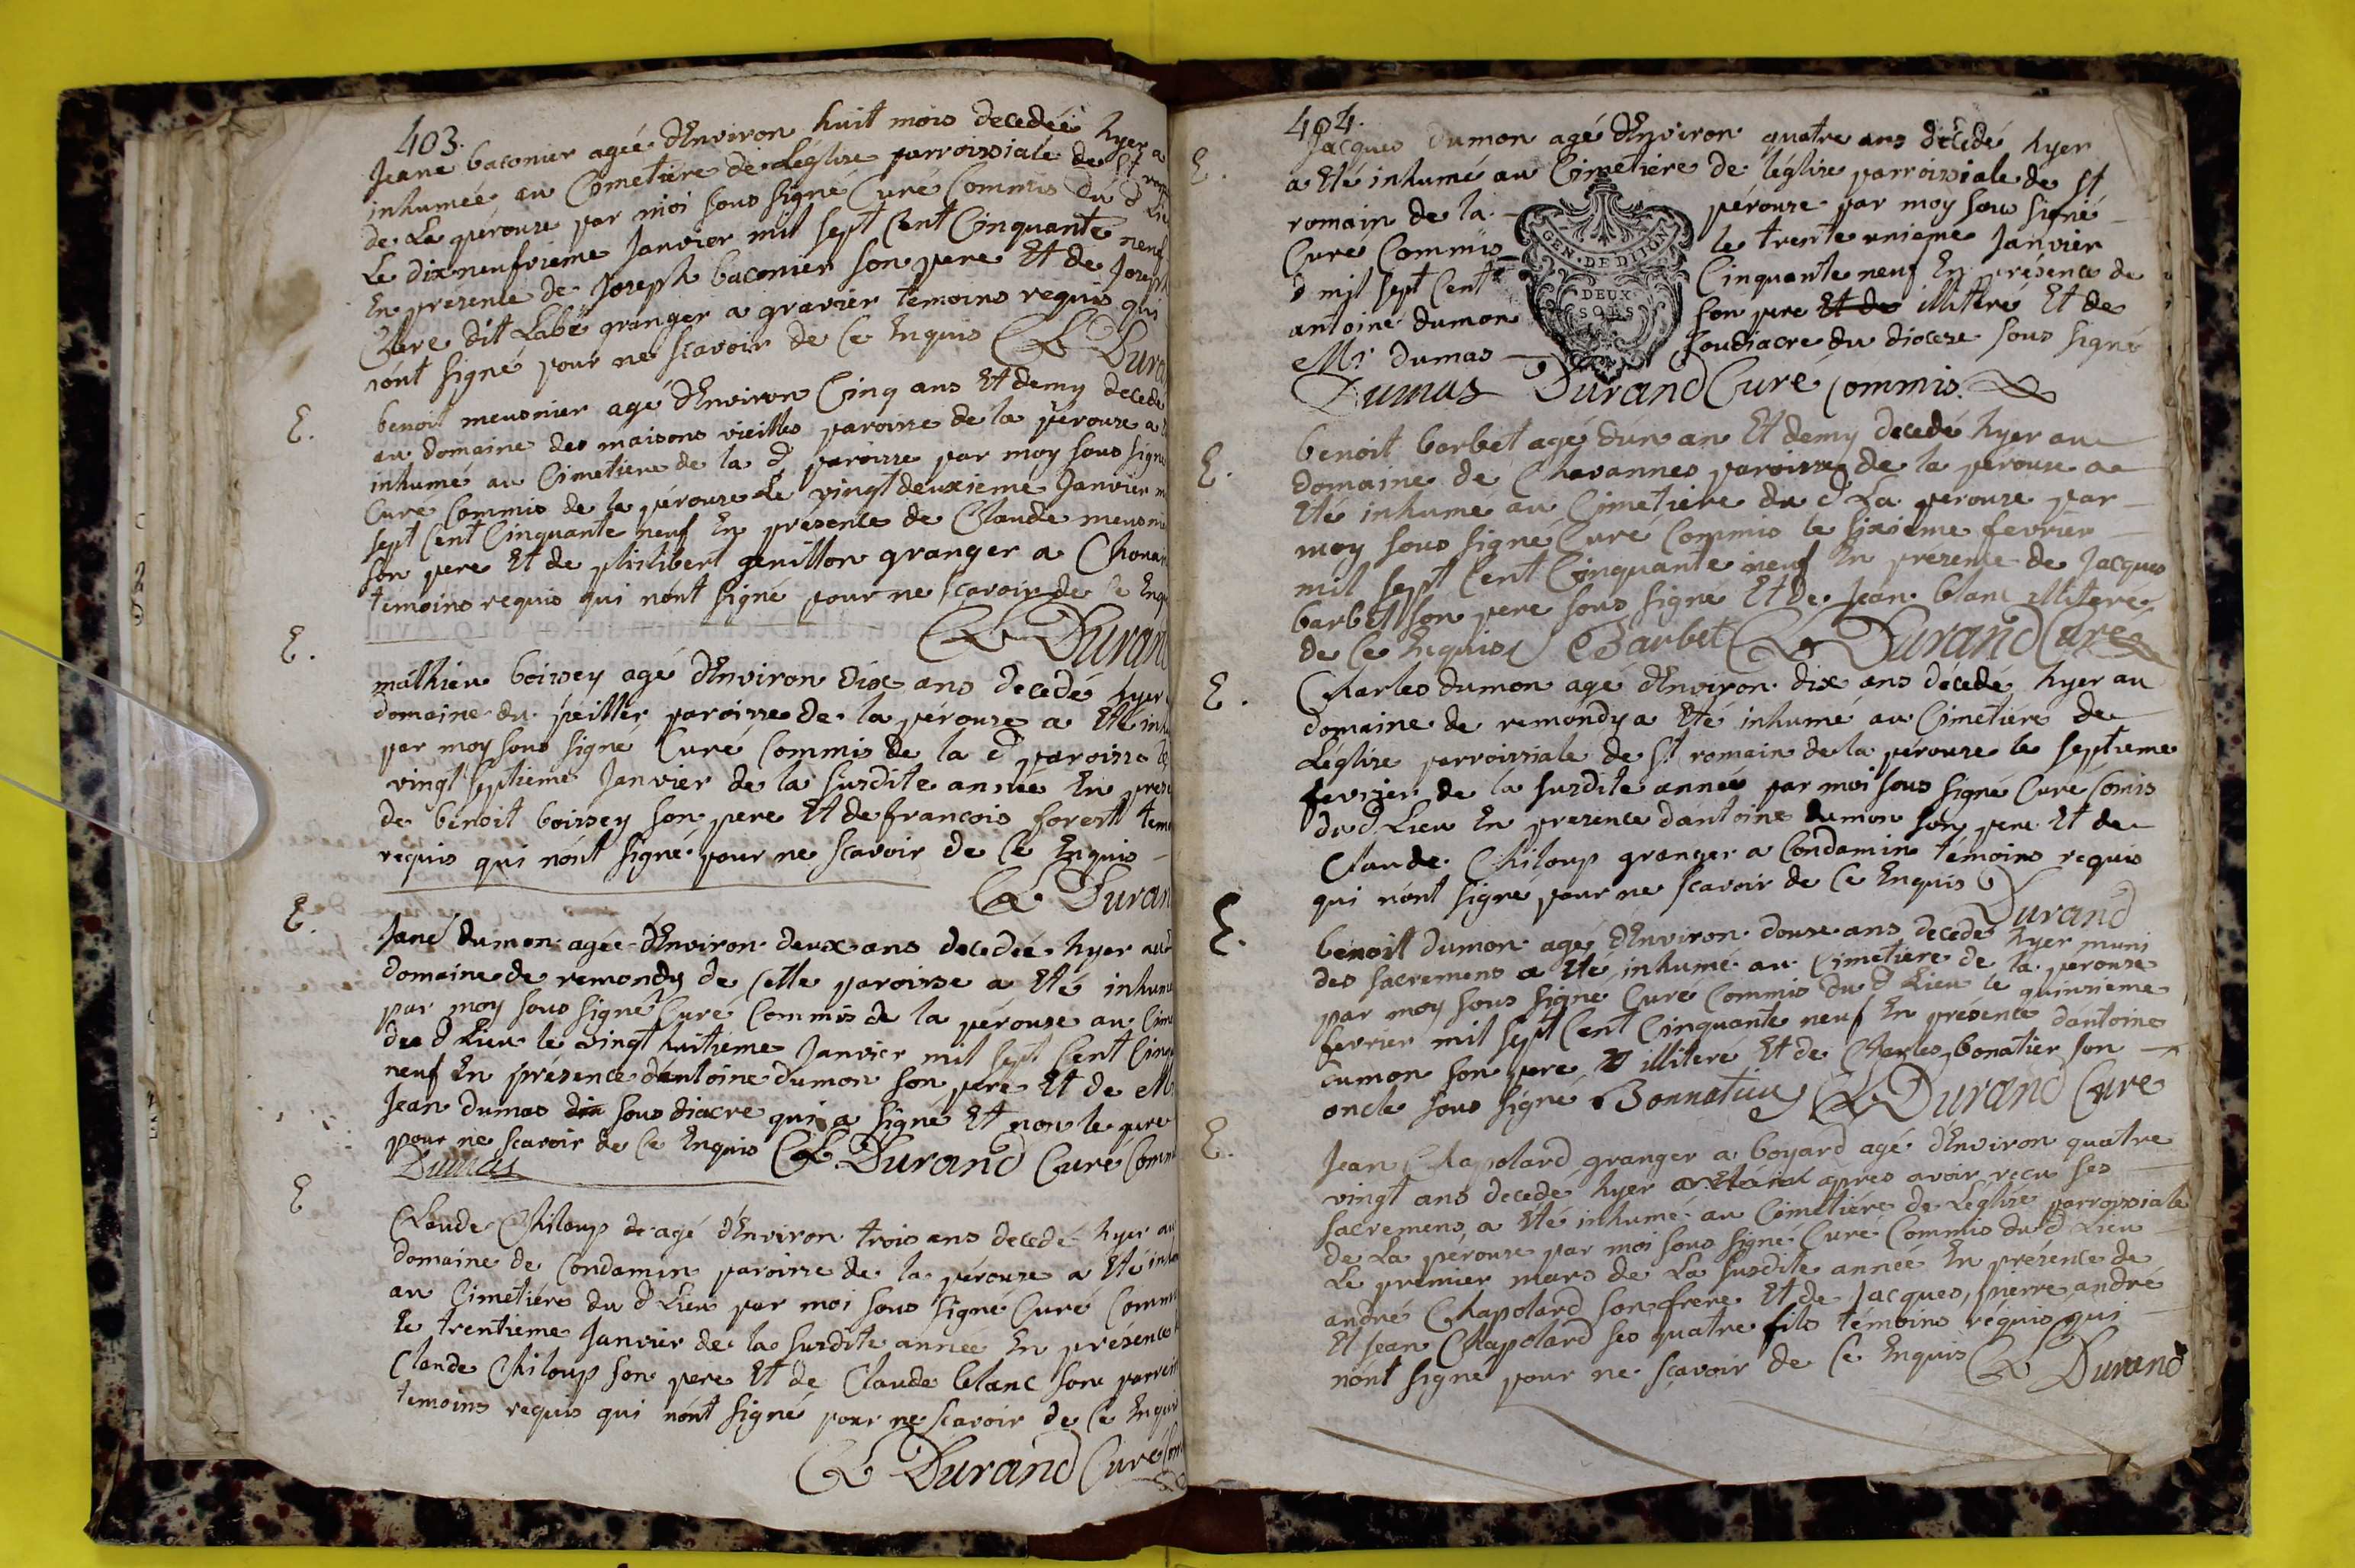 403.
Jeane baconier agée d'Environ huit mois decedée hyer a
inhumée au Cimetiere de Léglise parroissiale de St
de La pérouse par moi sous signé Curé Commis du d Lieu
Le dixneufvieme Janvier mil sept Cent Cinquante neuf
En présence de Joseph baconier son pere Et de Joseph
Clere dit Labé granger a gravier temoins requis qui
nónt signé pour ne scavoir de Ce Enquis Cl Durand
E. benoit meusnier agé d'Environ Cinq ans Et demy decedé
au domaine des maisons vieilles paroisse de la pérouse a
inhumé au Cimetiere de la d paroisse par moy sous signé
Curé Commis de la pérouse Le vingt deuxieme Janvier m
sept Cent Cinquante neuf En présence de Claude meusnie
son pere Et de philibert genillon granger a Chona
temoins requis qui nónt signé pour ne sçavoir de Ce Enq
Cl Durand
E. mathieu boissey agé d'Environ dix ans decedé hyer
domaine du peiller paroisse de la pérouse a Eté inh
par moy sous signé Curé Commis de la d paroisse le
vingt septieme Janvier de la susdite année En prese
de benoit boissey son pere Et de francois forest tem
requis qui nónt signé pour ne scavoir de Ce Enquis
Cl Duran
E. Jané dumon agée d'Environ deux ans decedée hyer au
domaine de remondy de Cette paroisse a Eté inhum
par moy sous signé Curé Commis de la pérouse au Cime
du d Lieu le vingt huitieme Janvier mil sept Cent Cinq
neuf En présence dantoine dumon son pere Et de M
Jean dumas sous diacre qui a signé Et non le pere
pour ne scavoir de Ce Enquis Cl Durand Curé Comm
Dumas
E Claude Chiloup agé d'Environ trois ans decedé hyer au
domaine de Condamin paroisse de la pérouse a Eté inh
au Cimetiére du d Lieu par moi sous signé Curé Comm
le trentieme Janvier de la susdite année En présence
Claude Chiloup son pere Et de Claude blanc son parrein
temoins requis qui nónt signé pour ne scavoir de Ce Enqui
Cl Durand Curé Com
404.
E. Jacques dumon agé d'Environ quatre ans décédé hyer
a Eté inhumé au Cimétiére de léglise parroissiale de St
romain de la pérouse par moy sous signé
Curé Commis le trente unieme Janvier
d mil sept Cent Cinquante neuf En présence de
antoine dumon son pere Et de illiteré Et de
Mr dumas soudiacre du diocese sous signé
GEN. DE DIJON
DEUX
SOLS
Dumas Durand Curé Commis.
E. benoit barbet agé dún an Et demy decedé hyer au
domaine de Chavannes paroisse de la pérouse a
Eté inhumé au Cimetiere du d La pérouse par
moy sous signé Curé Commis le sixieme fevrier
mil sept Cent Cinquante neuf En présence de Jacques
barbet son pere sous signé Et De Jean blanc illiteré
de Ce Enquis Barbet Cl Durand Curé
E. Charles dumon agé d'Environ dix ans décedé hyer au
domaine de remondy a Eté inhumé au Cimetiére de
Léglise parroissiale de St romain de la pérouse le septieme
fevrier de la susdite année par moi sous signé Curé Comis
du d Lieu En presence dantoine dumon son pere Et de
Claude Chiloup granger a Condamin témoins requis
qui nónt signé pour ne scavoir de Ce Enquis Durand
E. benoit dumon agé d'Environ douse ans decedé hyer muni
des sacremens a Eté inhumé au Cimetiere de la pérouse
par moy sous signé Curé Commis du d Lieu le quinzieme
fevrier mil sept Cent Cinquante neuf En présence dantoine
dumon son pere illiteré Et de Charles bonatier son
oncle sous signé Bonnatier Cl Durand Curé
E. Jean Chapolard granger a boyard agé d'Environ quatre
vingt ans decedé hyer apres avoir recu ses
sacremens a Eté inhumé au Cimetiére de Léglise parroissiale
de La pérouse par moi sous signé Curé Commis du d Lieu
Le premier mars de La susdite année En présence de
andré Chapolard son frere Et de Jacques, pierre, andré
Et Jean Chapolard ses quatre fils témoins réquis qui
nónt signé pour ne sçavoir de Ce Enquis Cl Durand